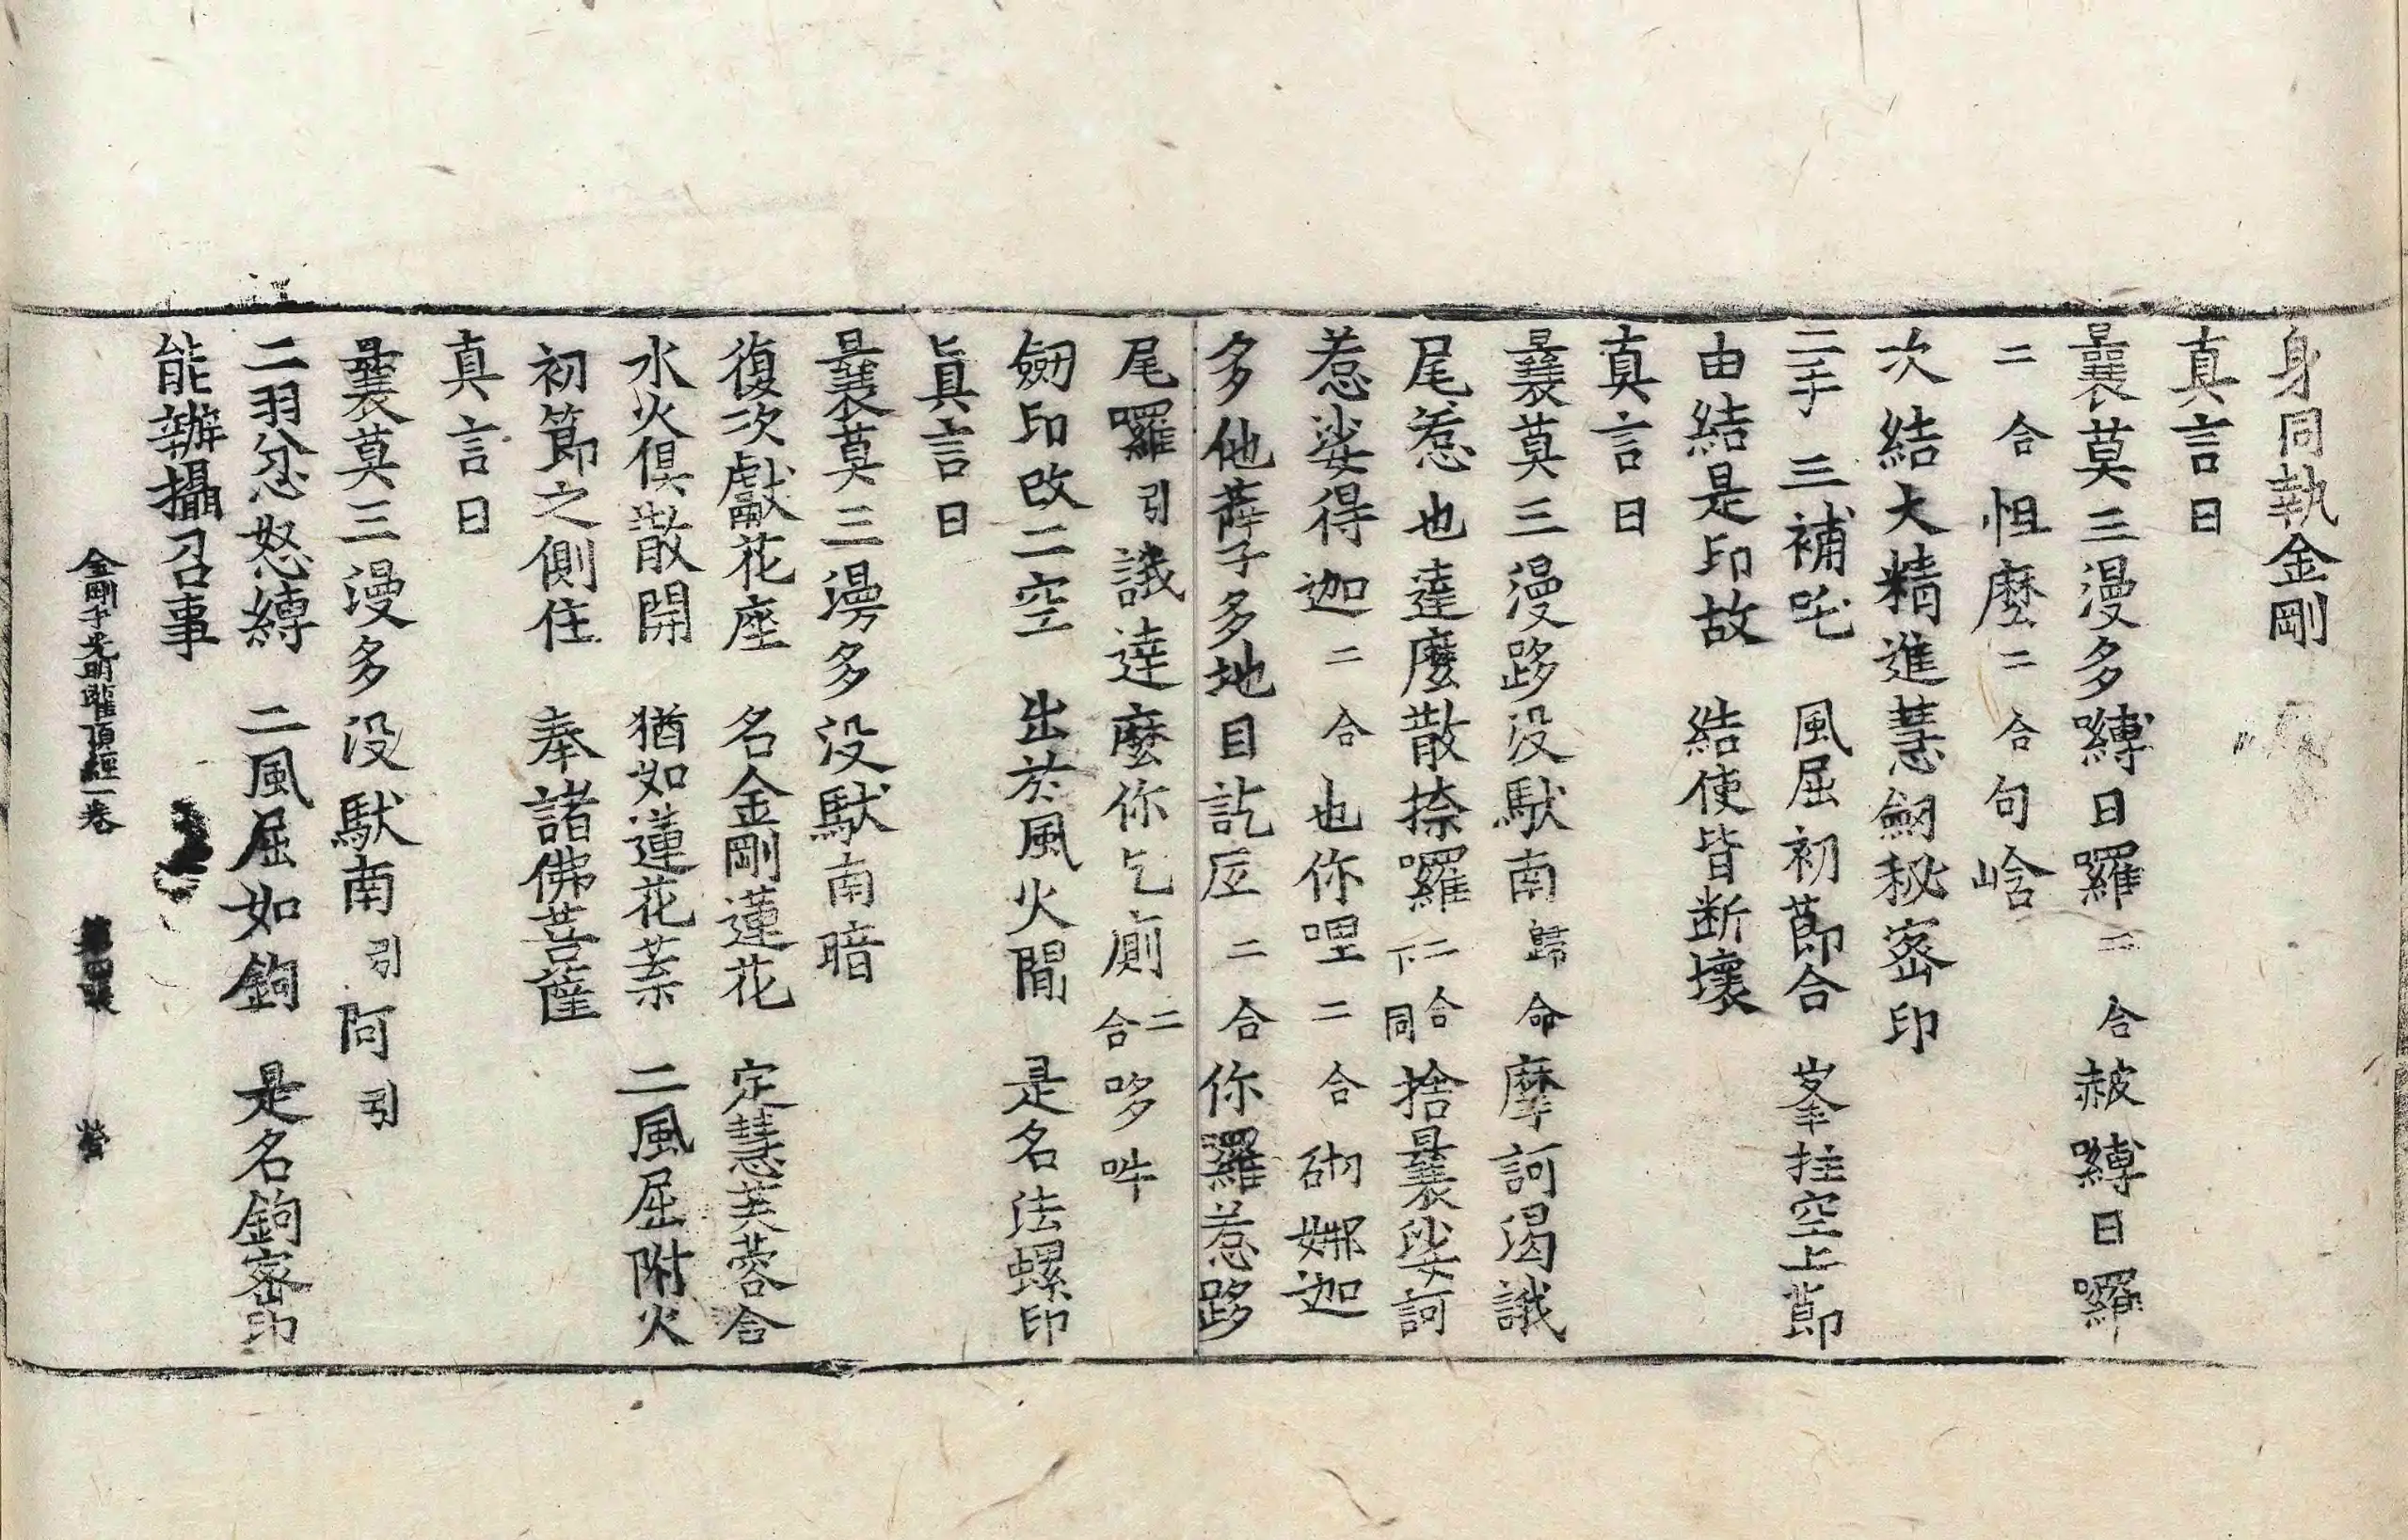 身同執金剛
真言曰
曩莫三漫多嚩日囉二合赧嚩日囉
二合怛麼二合句唅
次結大精進慧劒秘密印
二手三補吒　風屈初節合　峯拄空上節
由結是印故　結使皆断壞
真言曰
曩莫三漫跢没馱南歸命摩訶渴誐
尾惹也達麼散捺囉二合下同捨曩娑訶
惹娑得迦二合也你哩二合瑟娜迦
多他蘖多地目訖底二合你羅惹跢
尾囉引誐達麼你乞廁二合哆吽
劒印改二空　出於風火間　是名法螺印
真言曰
曩莫三漫多没馱南暗
復次獻花座　名金剛蓮花　定慧芙蓉合
水火俱散開　猶如蓮花葉　二風屈附火
初節之側住　奉諸佛菩薩
真言曰
曩莫三漫多没馱南引阿引
二羽忿怒縛　二風屈如鉤　是名鉤密印
能辦攝召事
金剛手光明灌頂經一卷　第四張